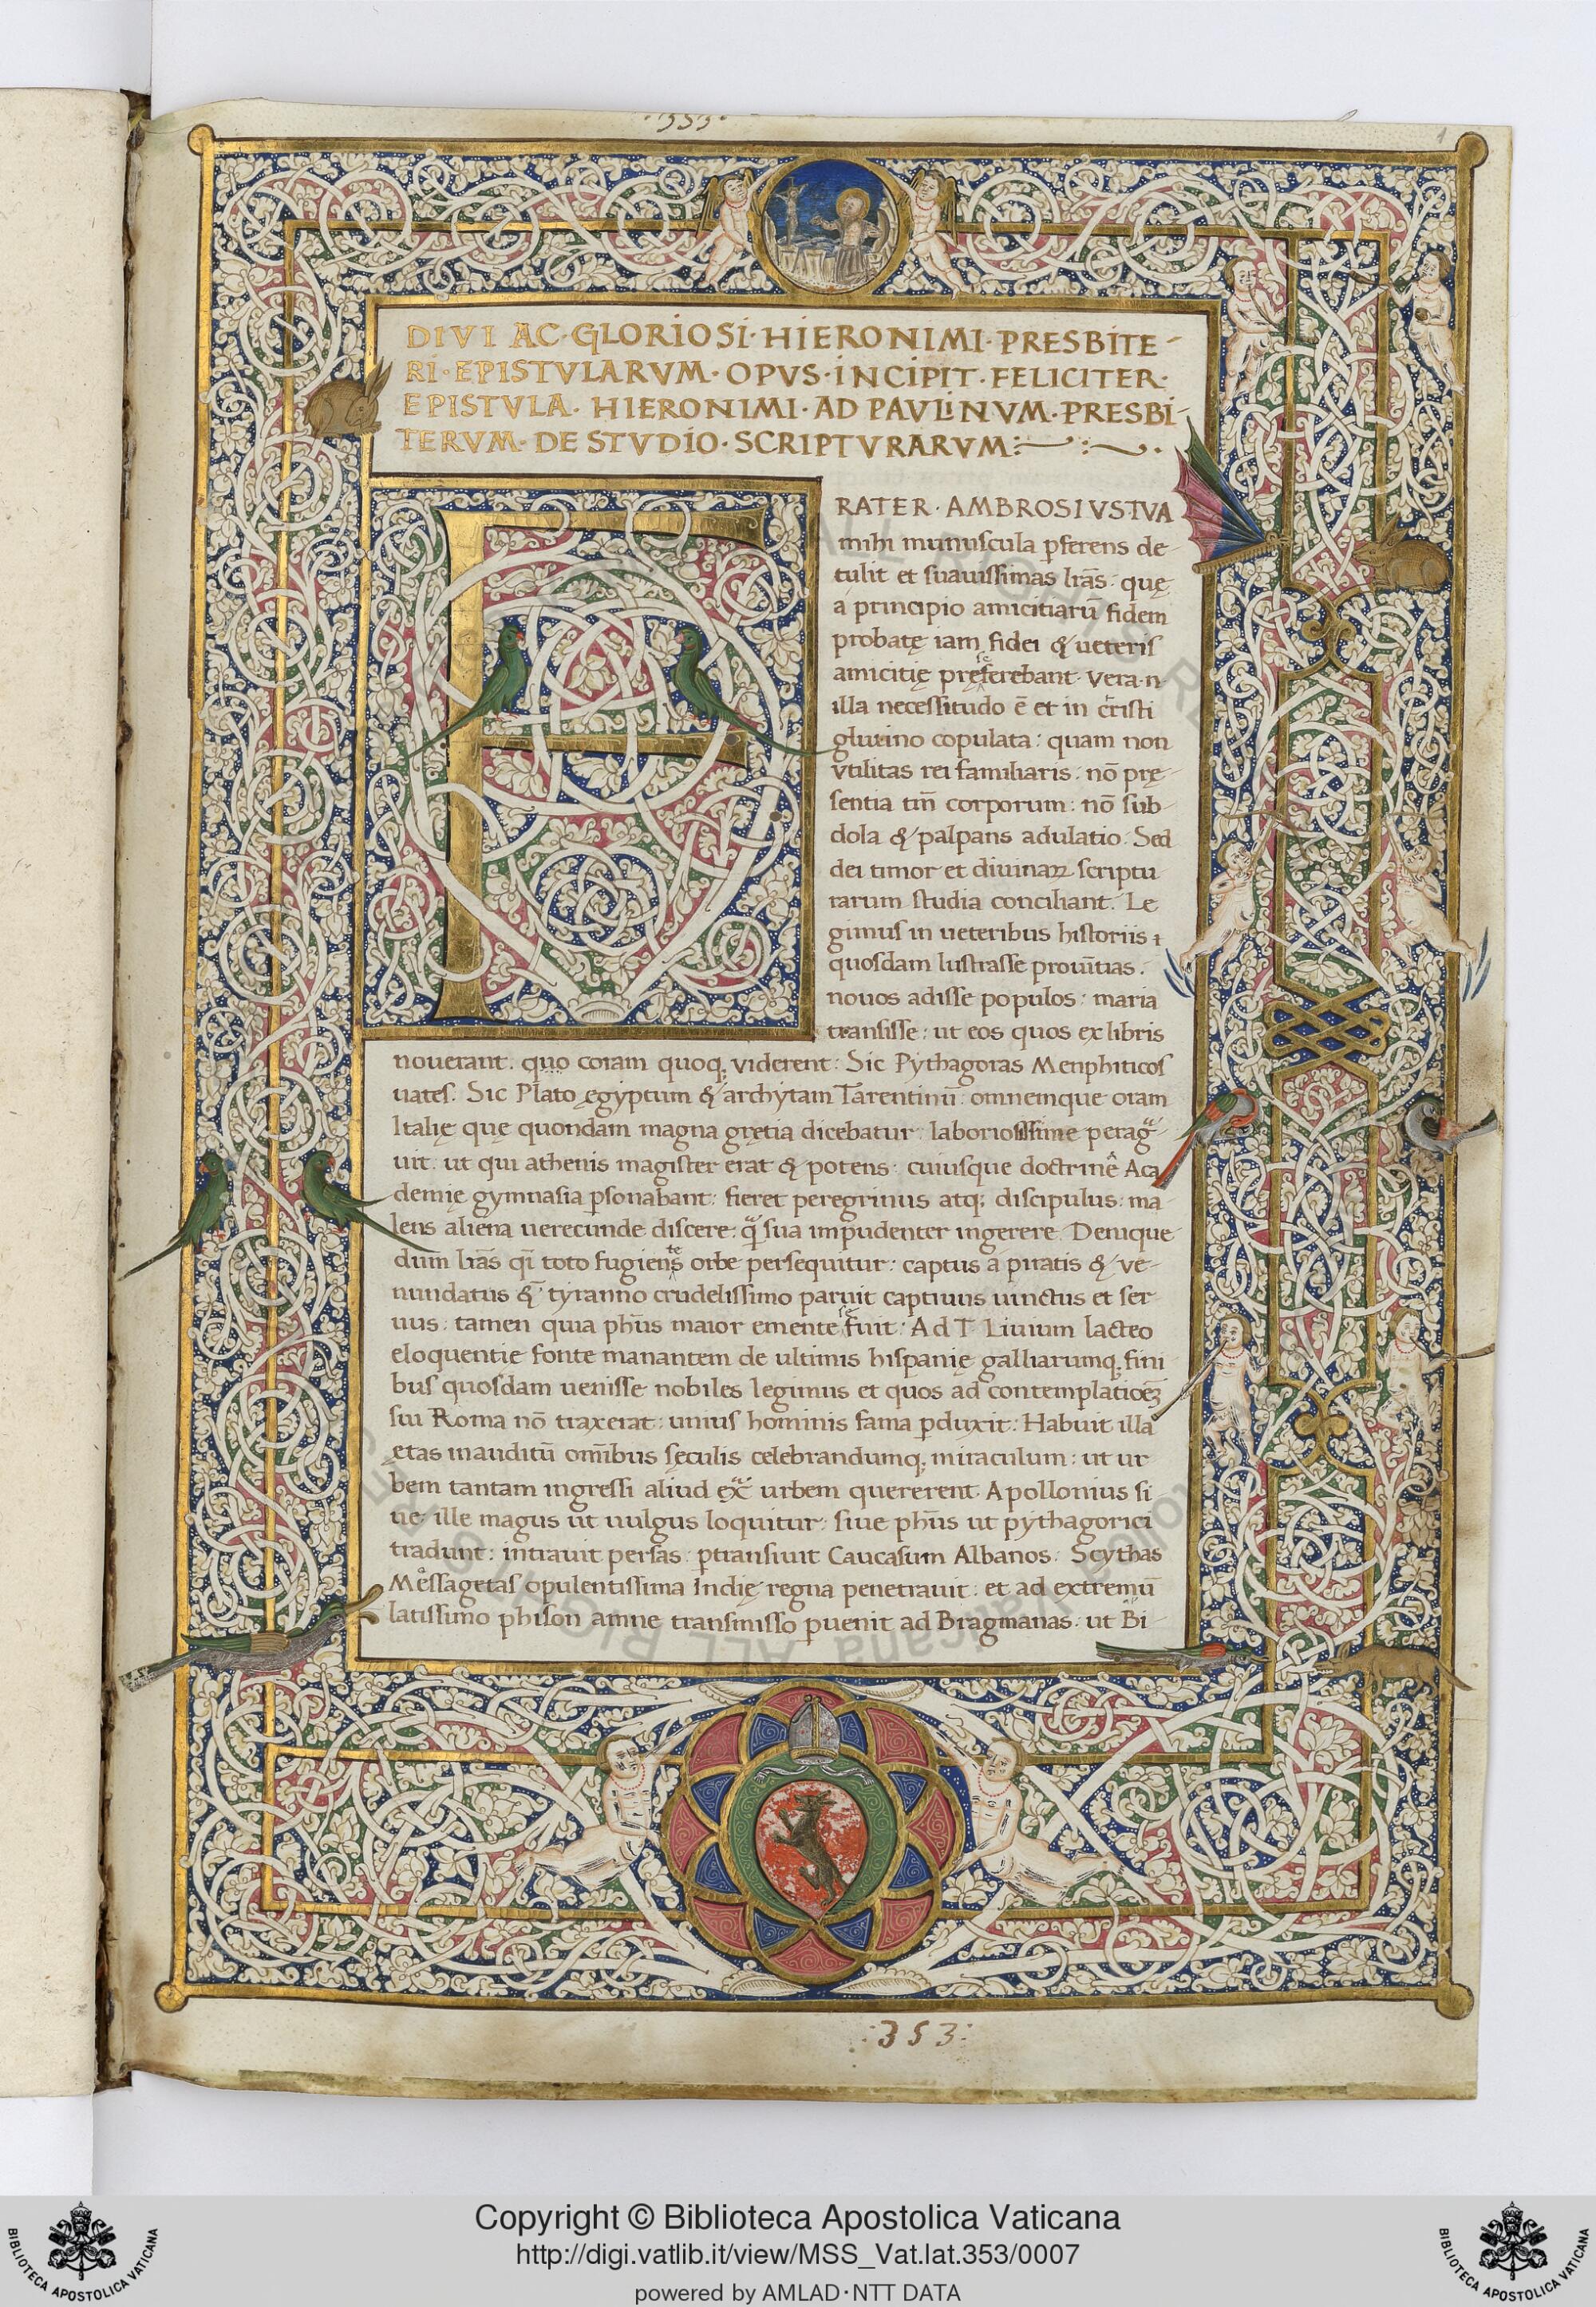 353
1
DIVI AC·GLORIOSI·HIERONIMI·PRESBITE-
RI·EPISTVLARVM·OPVS·INCIPIT·FELICITER·
EPISTVLA·HIERONIMI·AD PAVLINVM·PRESBI-
TERVM·DE STVDIO·SCRIPTVRARVM:
F
RATER·AMBROSIVS TVA
mihi munuscula ꝑferens de-
tulit et suauissimas lr̄as: quę
a principio amicitiarū fidem
probatę iam fidei & ueteris
amicitię pręferebant. Vera·n·
illa necessitudo ē et in cristi
glutino copulata: quam non
vtilitas rei familiaris: nō prę-
sentia tm̄ corporum: nō sub-
dola & palpans adulatio. Sed
dei timor et diuinaꝝ scriptu
rarum studia conciliant. Le
gimus in ueteribus historiis
quosdam lustrasse prouītias.
nouos adisse populos: maria
transisse: ut eos quos ex libris
nouerant. quo coram quoq; viderent: Sic Pythagoras Menphiticos
uates. Sic Plato ęgyptum & archytam Tarentinū: omnemque oram
Italię quę quondam magna gretia dicebatur: laboriosissime peragͣ
uit. ut qui athenis magister erat & potens: cuiusque doctrinē Aca
demię gymnasia ꝑsonabant: fieret peregrinus atq; discipulus: ma-
lens aliena uerecunde discere: qͣ sua impudenter ingerere. Denique
dum lr̄as qͥ toto fugientes orbe persequitur: captus a piratis & ve-
nundatus & tyranno crudelissimo paruit captiuus uinctus et ser-
uus: tamen quia ph̄us maior emente se fuit: Ad T. Liuium lacteo
eloquentie fonte manantem de ultimis hispanię galliarumq; fini
bus quosdam uenisse nobiles legimus et quos ad contemplatioēꝫ
sui Roma nō traxerat: unius hominis fama ꝑduxit: Habuit illa
ętas inauditū om̄ibus sęculis celebrandumq; miraculum: ut ur
bem tantam ingressi aliud exͣ urbem quererent. Apollonius si-
ue ille magus ut uulgus loquitur: siue ph̄us ut pythagorici
tradunt: intrauit persas: ꝑtransiuit Caucasum Albanos: Scythas
Messagetas opulentissima Indię regna penetrauit: et ad extremū
latissimo phison amne transmisso ꝑuenit ad Bragmanas: ut Bi-
:353:
Copyright © Biblioteca Apostolica Vaticana
http://digi.vatlib.it/view/MSS_Vat.lat.353/0007
powered by AMLAD·NTT DATA
BIBLIOTECA APOSTOLICA VATICANA
BIBLIOTECA APOSTOLICA VATICANA